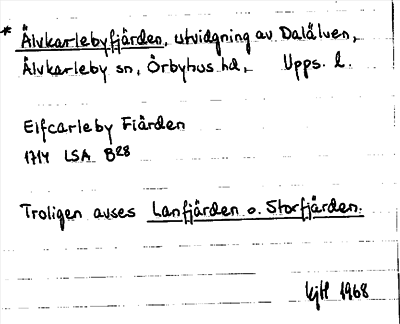 * Älvkarlebyfjärden, utvidgning av Dalälven,
Älvkarleby sn, Örbyhus hd, Upps. l.
Elfcarleby Fiärden
1714 LSA B28
Troligen avses Lanfjärden o. Storfjärden.
KjH 1968